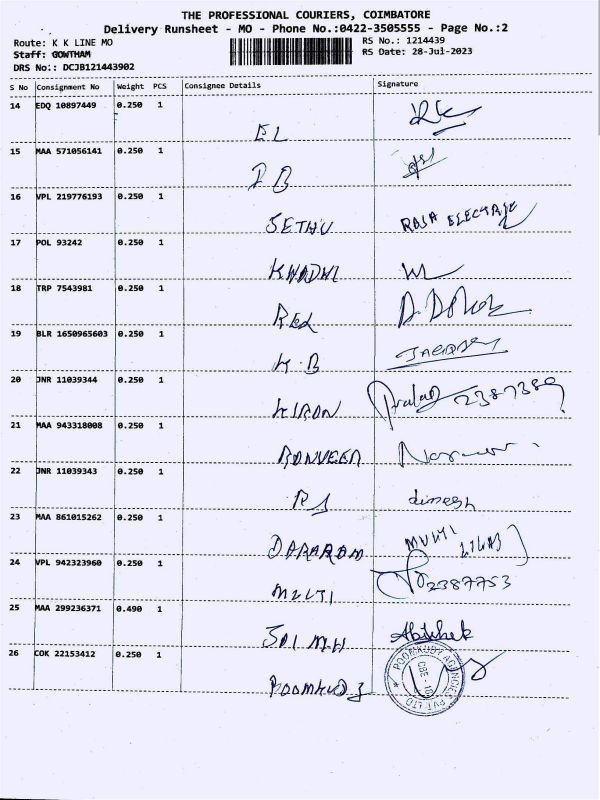 THE PROFESSIONAL COURIERS, COIMBATORE
Delivery Runsheet - MO - Phone No.:0422-3505555 - Page No.:2
Route: K K LINE MO
RS No.: 1214439
Staff: GOWTHAM
RS Date: 28-Jul-2023
DRS No.: DCJB121443902
S No Consignment No Weight PCS Consignee Details Signature
14 EDQ 10897449 0.250 1
EL
15 MAA 571056141 0.250 1
DB
16 VPL 219776193 0.250 1
SETHU RAJA ELECTRIC
17 POL 93242 0.250 1
KHADHI
18 TRP 7543981 0.250 1
19 BLR 1650965603 0.250 1
K.B
20 JNR 11039344 0.250 1
KIRAN 2387389
21 MAA 943318008 0.250 1
RANVEER
22 JNR 11039343 0.250 1
RJ dinesh
23 MAA 861015262 0.250 1
DARARAM MULTI
24 VPL 942323960 0.250 1
MULTI 2387753
25 MAA 299236371 0.490 1
JAI MH Abishek
26 COK 22153412 0.250 1
POOMKUDJ
POOMKUDY AGENCIES PVT LTD
CBE - 18